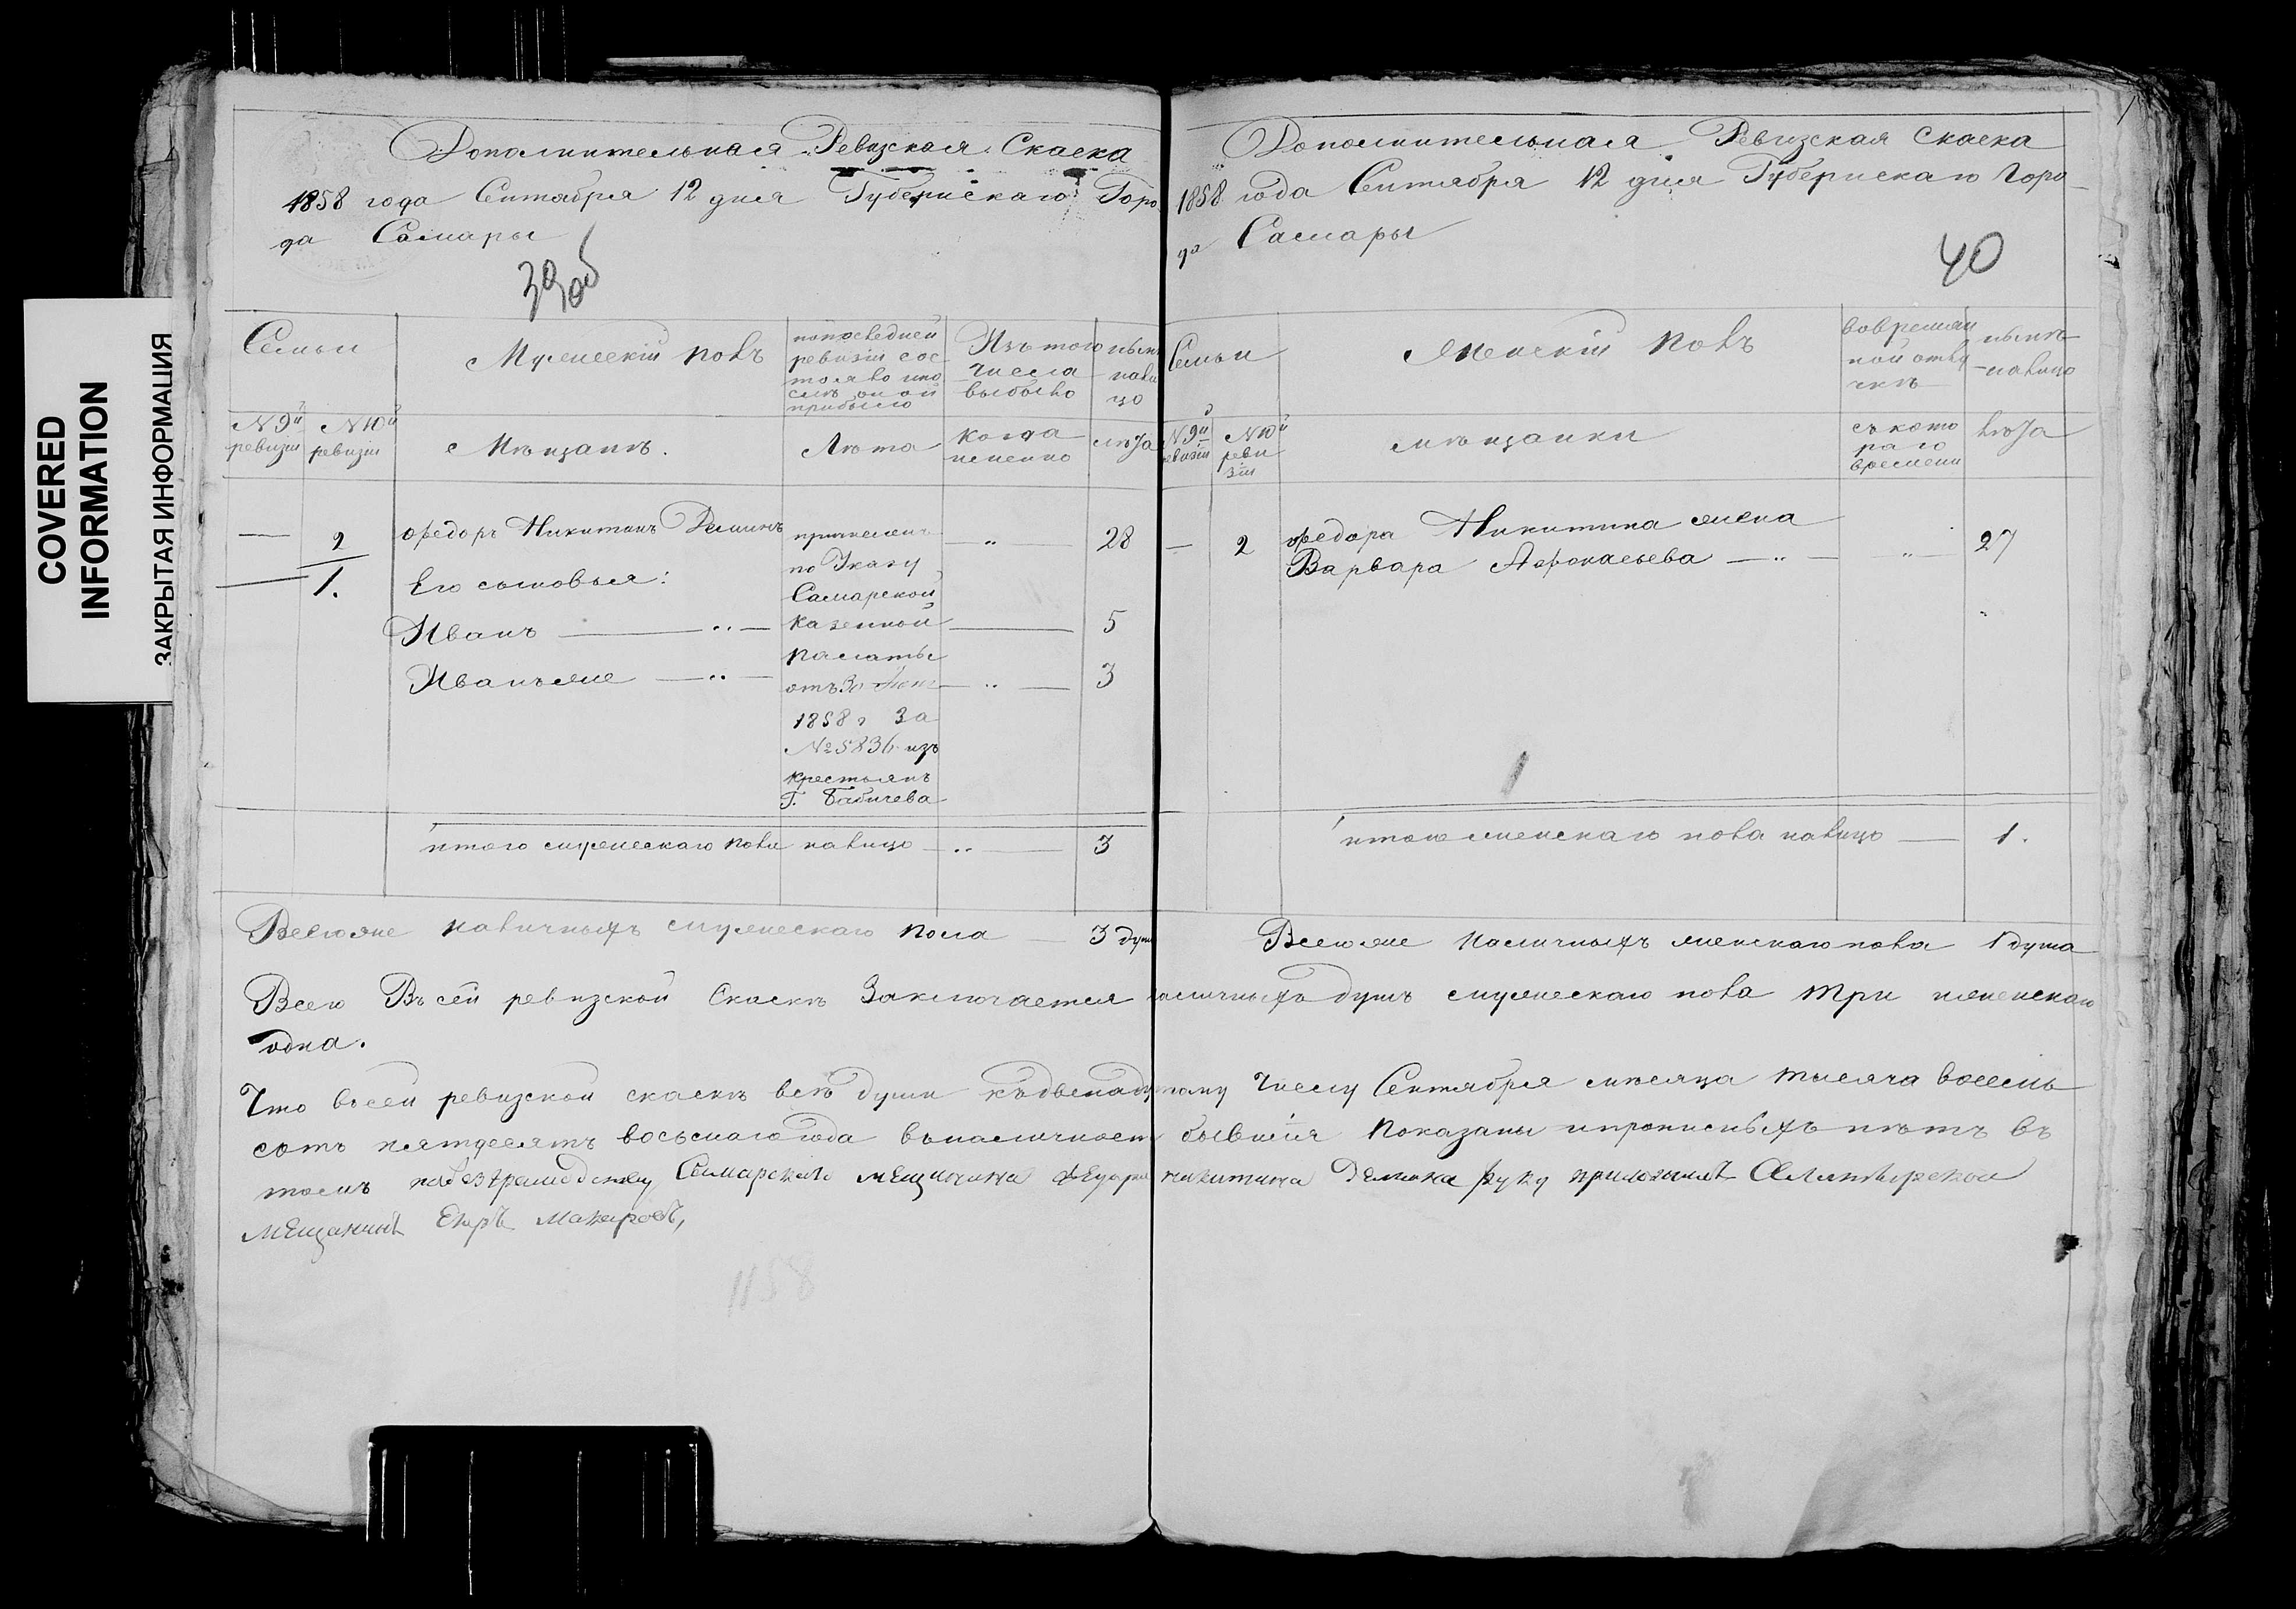 COVERED
INFORMATION
ЗАКРЫТАЯ ИНФОРМАЦИЯ
Дополнительная Ревизская Скаска
1858 года Сентября 12 дня Губернскаго Горо
да Самары
39об
Семьи
Мужескій полъ
попоследней
ревизіи сос
тояло ипо
слѣ оной
прибыло
Изътого
числа
выбыло
нынѣ
нали
цо
№ 9й
ревизіи
№ 10й
ревизіи
Мѣщанъ.
Лѣта
когда
именно
лѣта
— 2
1.
Федоръ Никитинъ Деминъ
причисленъ
по Указу
Самарской
Казенной
палаты
от
1858 г за
№ 5836 изъ
крестьянъ
Г. Бабичева
28
Его сыновья:
Иванъ — 5
Иванъже — 3
итого мужескаго пола налицо — 3
Всегоже наличныхъ мужескаго пола — 3 душ
Дополнительная Ревизская Скаска
1858 года Сентября 12 дня Губернскаго Горо
да Самары
40
Семьи
Женскій полъ
вовремян
ной отлу
чкѣ
нынѣ
налицо
№ 9й
ревизіи
№ 10й
реви
зіи
мѣщанки
съ кото
раго
времени
лѣта
— 2
Федора Никитина жена
Варвара Афонасьева — 27
итого женскаго пола налицо — 1.
Всегоже наличныхъ женскаго пола 1 душа
Всего Въ сей ревизской Скаскѣ Заключается наличныхъ душъ мужескаго пола три иженскаго
одна.
Что всей ревизской скаскѣ всѣ души къдвенадцатому Числу Сентября мѣсяца тысяча восемь
сотъ пятдесятъ восьмаго года вналичност бывшія показаны ипрописныхъ нѣтъ въ
томъ Самарскаго мещинина Федора никитина Демина руку приложилъ
мещанинъ Егоръ Макаровъ,
1158